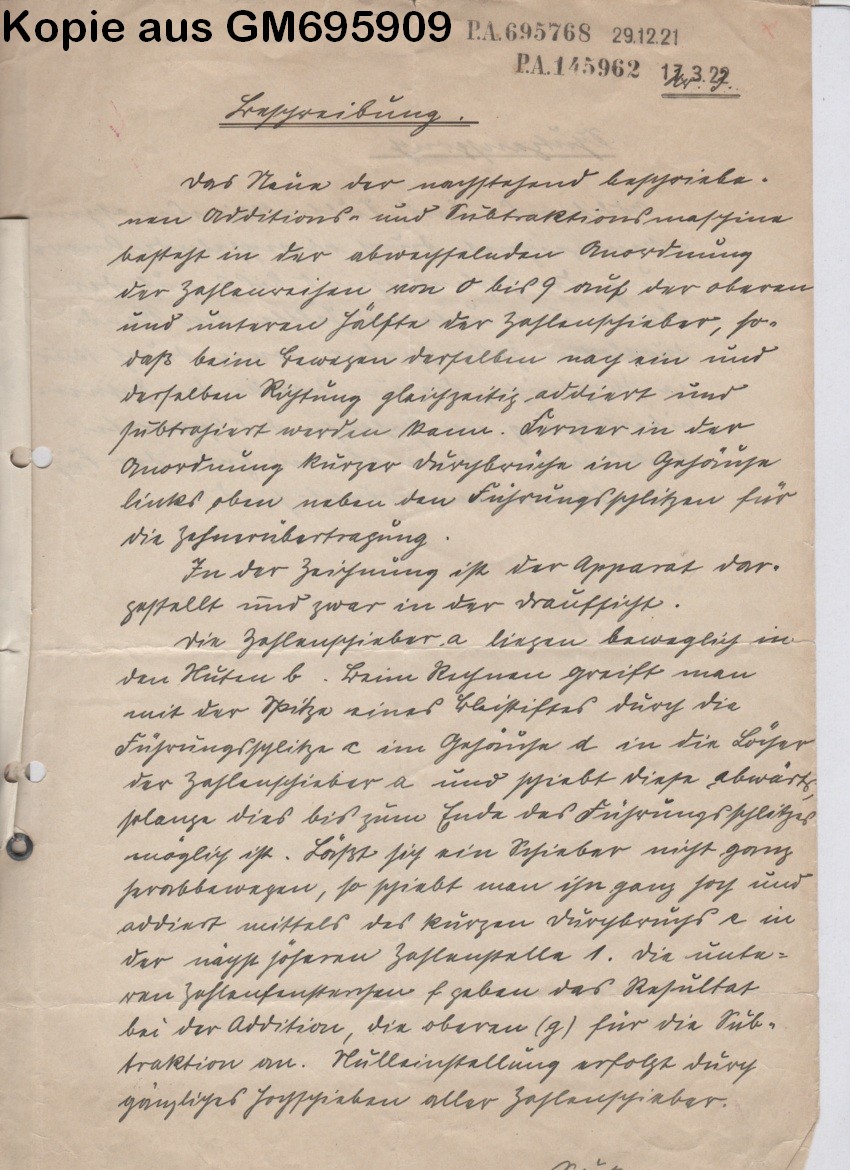 Kopie aus GM695909
P.A.695768 29.12.21
P.A.145962 17.3.22
Beschreibung.
Das Neue der nachstehend beschriebe-
nen Additions- und Subtraktionsmaschine
besteht in der abwechselnden Anordnung
der Zahlenreihen von 0 bis 9 auf der oberen
und unteren Hälfte der Zahlenschieber, so-
daß beim Bewegen derselben nach ein und
derselben Richtung gleichzeitig addiert und
subtrahiert werden kann. Ferner in der
Anordnung kurzer Durchbrüche im Gehäuse
links oben neben den Führungsschlitzen für
die Zehnerübertragung.
In der Zeichnung ist der Apparat dar-
gestellt und zwar in der Draufsicht.
Die Zahlenschieber a liegen beweglich in
den Nuten b. Beim Rechnen greift man
mit der Spitze eines Bleistiftes durch die
Führungsschlitze c im Gehäuse d in die Löcher
der Zahlenschieber a und schiebt diese abwärts,
solange dies bis zum Ende des Führungsschlitzes
möglich ist. Läßt sich ein Schieber nicht ganz
herabbewegen, so schiebt man ihn ganz hoch und
addiert mittels des kurzen Durchbruchs e in
der nächst höheren Zahlenstelle 1. Die unte-
ren Zahlenfensterchen f geben das Resultat
bei der Addition, die oberen (g) für die Sub-
traktion an. Nulleinstellung erfolgt durch
gänzliches Hochschieben aller Zahlenschieber.